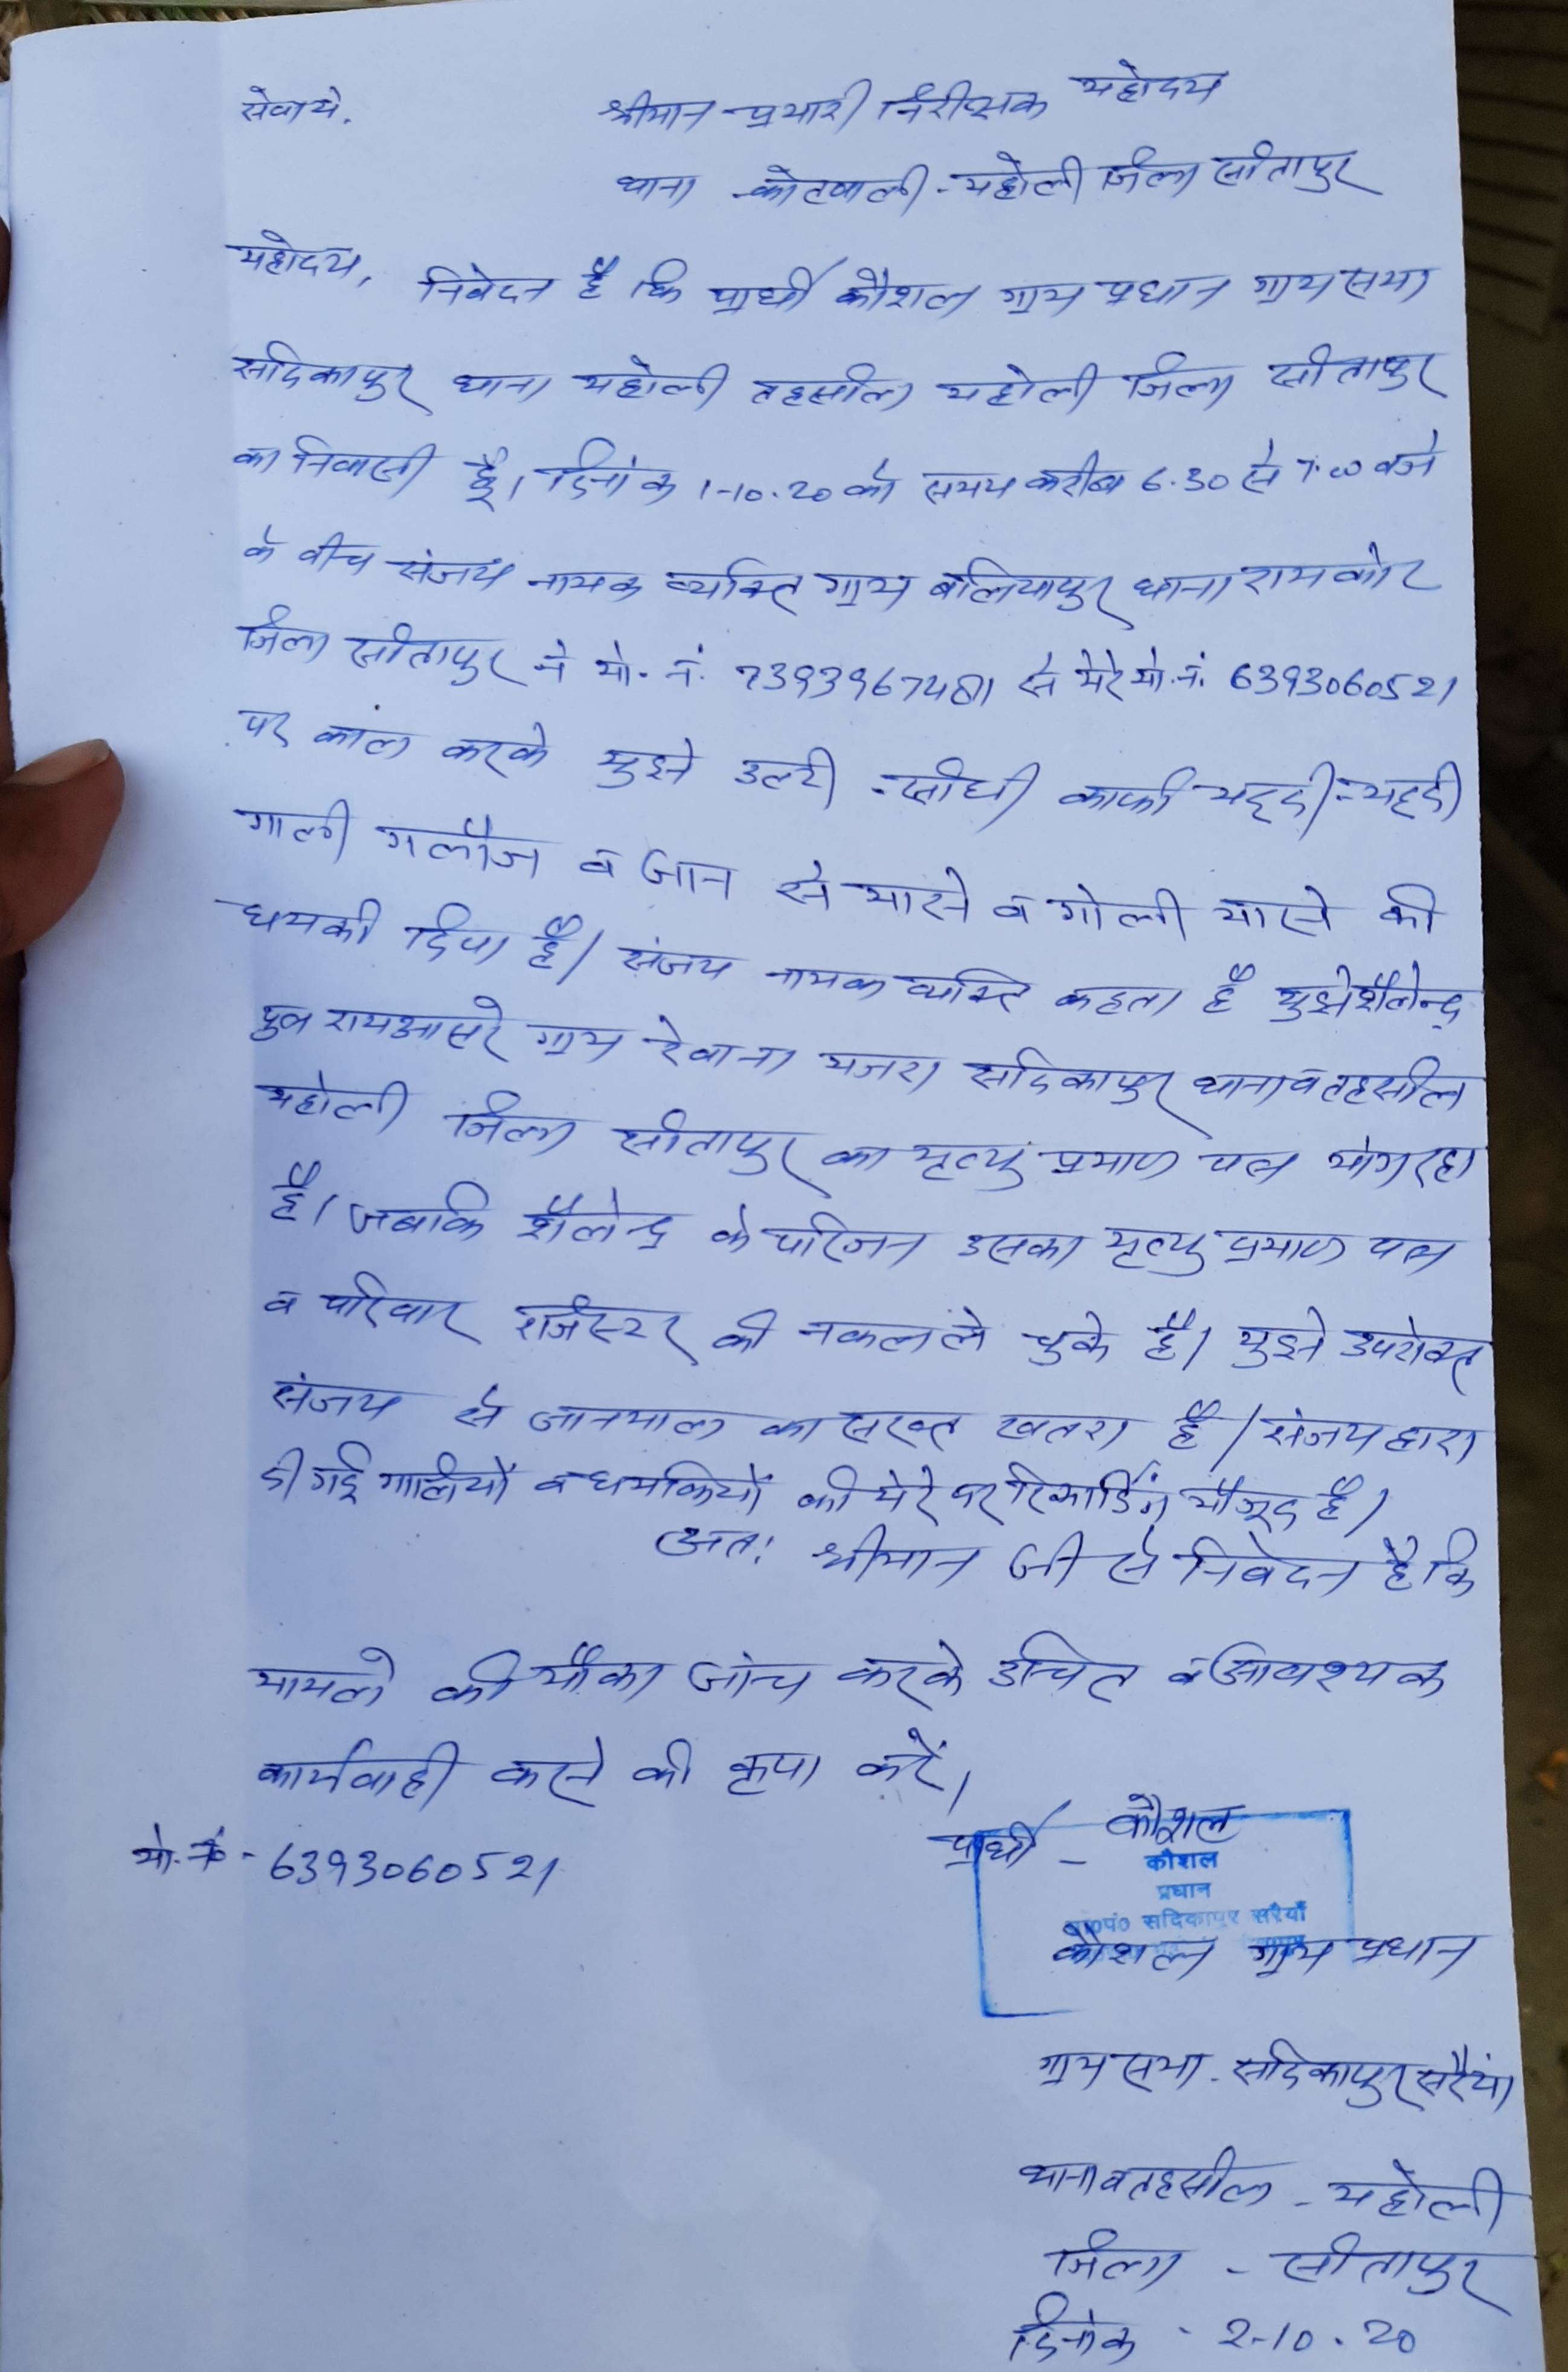 सेवा मे,
श्रीमान प्रभारी निरीक्षक महोदय
थाना - कोतवाली - महोली जिला सीतापुर
महोदय,
निवेदन है कि प्रार्थी कौशल ग्राम प्रधान ग्राम सभा
सदिकापुर थाना महोली तहसील महोली जिला सीतापुर
का निवासी हूँ। दिनांक 1-10.20 को समय करीब 6.30 से 7.00 बजे
के बीच संजय नामक व्यक्ति ग्राम बलियापुर थाना रामकोट
जिला सीतापुर ने मो. नं. से मेरे मो. नं. 6393060521
पर काल करके मुझे उल्टी - सीधी काफी भद्दी - भद्दी
गाली गलौज व जान से मारने व गोली मारने की
धमकी दिया है। संजय नामक व्यक्ति कहता है मुझे शैलेन्द्र
पुत्र रामआसरे ग्राम रेवाना मजरा सदिकापुर थाना व तहसील
महोली जिला सीतापुर का मृत्यु प्रमाण पत्र मांग रहा
है। जबकि शैलेन्द्र के परिजन उसका मृत्यु प्रमाण पत्र
व परिवार रजिस्टर की नकल ले चुके है। मुझे उपरोक्त
संजय से जानमाल का सख्त खतरा है। संजय द्वारा
दी गई गालियों व धमकियों की मेरे पर रिकार्डिंग मौजूद है।
अतः श्रीमान जी से निवेदन है कि
मामले की मौका जांच करके उचित व आवश्यक
कार्यवाही करने की कृपा करें।
मो. नं - 6393060521
प्रार्थी - कौशल
कौशल
प्रधान
ग्रा०पं० सदिकापुर सरैयाँ
कौशल ग्राम प्रधान
ग्राम सभा - सदिकापुर सरैयां
थाना व तहसील - महोली
जिला - सीतापुर
दिनांक - 2-10.20